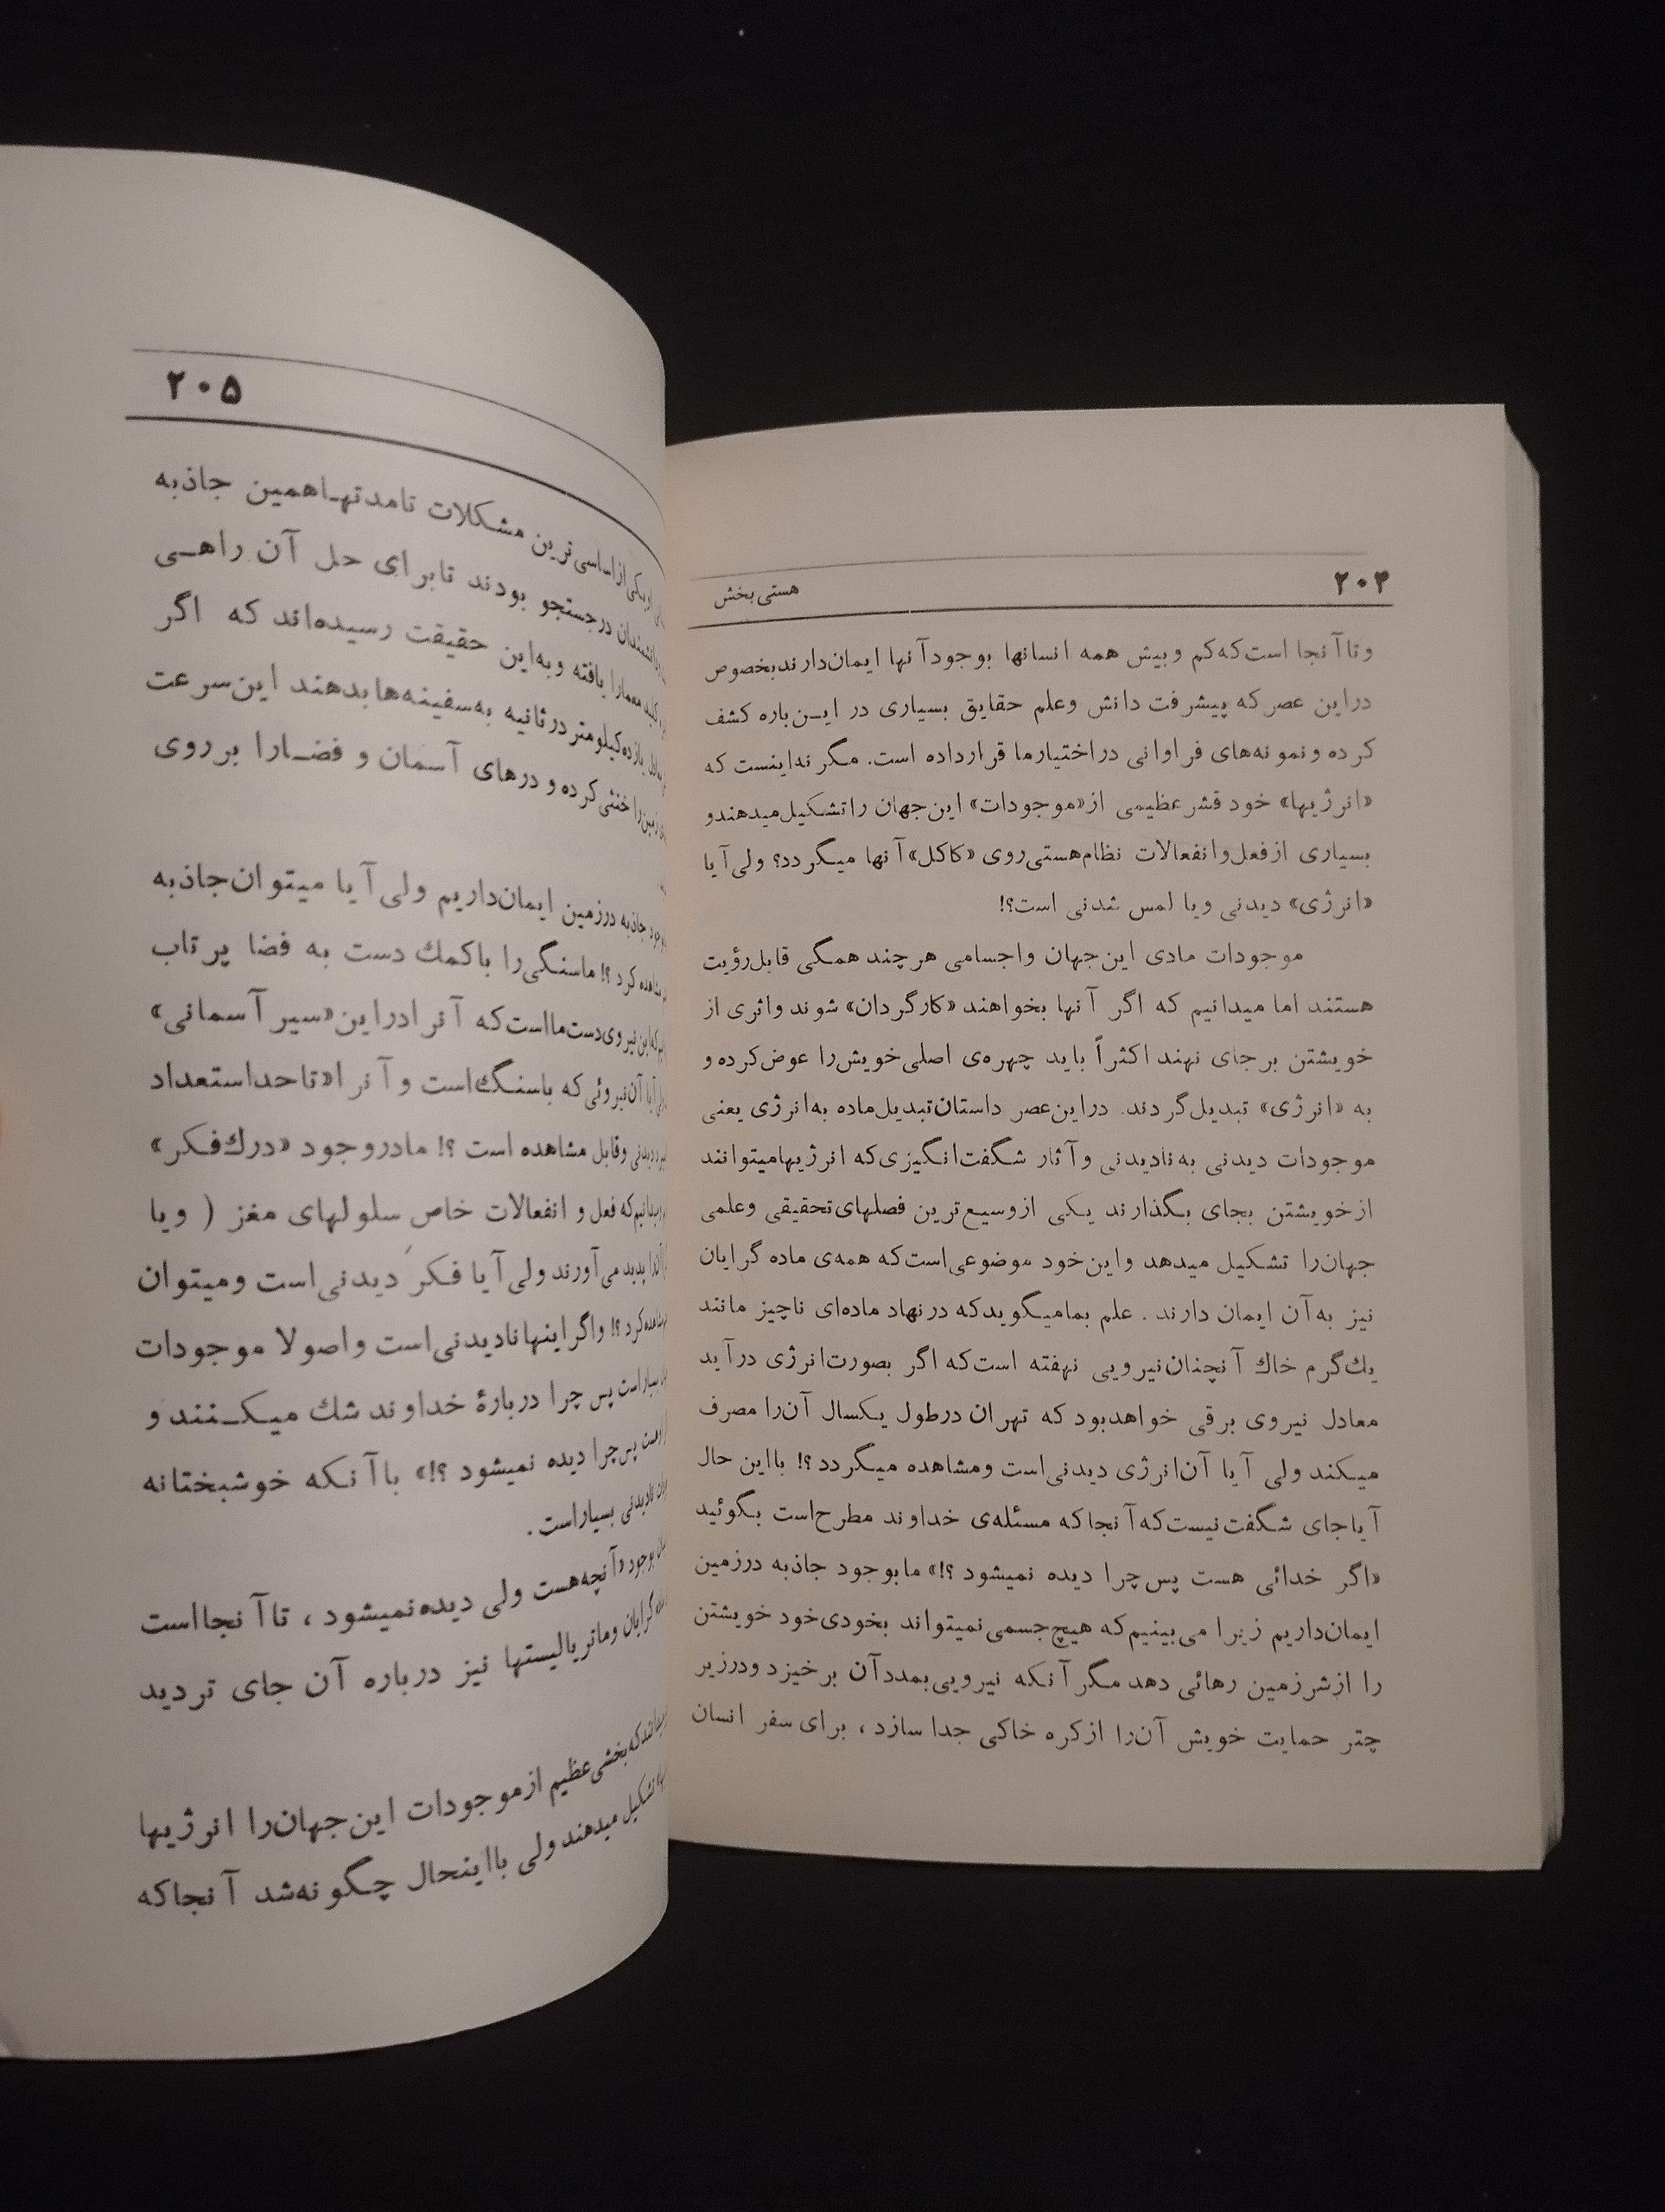 ۲۰۴
هستی بخش
وتاآنجا است‌که‌کم وبیش همه انسانها بوجودآنها ایمان‌دارندبخصوص
دراین عصر که پیشرفت دانش وعلم حقایق بسیاری در ایـن‌باره کشف
کرده ونمونه‌های فراوانی دراختیارما قرارداده است. مگر نه‌اینست که
«انرژیها» خود قشرعظیمی از«موجودات» این‌جهان راتشکیل‌میدهندو
بسیاری ازفعل‌وانفعالات نظام‌هستی‌روی «کاکل»آنها میگردد؟ ولی‌آیا
«انرژی» دیدنی ویا لمس شدنی است؟!
موجودات مادی این‌جهان واجسامی هرچند همگی قابل‌رؤیت
هستند اما میدانیم که اگر آنها بخواهند «کارگردان» شوند واثری از
خویشتن برجای نهند اکثراً باید چهره‌ی اصلی‌خویش‌را عوض‌کرده و
به «انرژی» تبدیل‌گردند. دراین‌عصر داستان‌تبدیل‌ماده به‌انرژی یعنی
موجودات دیدنی به‌نادیدنی وآثار شگفت‌انگیزی‌که انرژیهامیتوانند
ازخویشتن بجای بگذارند یکی ازوسیع‌ترین فصلهای‌تحقیقی وعلمی
جهان‌را تشکیل میدهد واین‌خود موضوعی‌است‌که همه‌ی ماده گرایان
نیز به‌آن ایمان دارند . علم بمامیگویدکه درنهاد ماده‌ای ناچیز مانند
یك‌گرم خاك آنچنان‌نیرویی نهفته است‌که اگر بصورت‌انرژی درآید
معادل نیروی برقی خواهدبود که تهران درطول یکسال آن‌را مصرف
میکند ولی آیا آن‌انرژی دیدنی‌است ومشاهده میگردد؟! بااین حال
آیاجای شگفت‌نیست‌که‌آنجاکه مسئله‌ی خداوند مطرح‌است بگوئید
«اگر خدائی هست پس‌چرا دیده نمیشود ؟!» مابوجود جاذبه درزمین
ایمان‌داریم زیرا می‌بینیم‌که هیچ‌جسمی‌نمیتواند بخودی‌خود خویشتن
را ازشرزمین رهائی دهد مگرآنکه نیرویی‌بمددآن برخیزد ودرزیر
چتر حمایت خویش آن‌را ازکره خاکی جدا سازد ، برای سفر انسان
۲۰۵
ازاساسی‌ترین مشکلات نامدتهـاهمین جاذبه
درجستجو بودند تابرای حل آن راهـی
معمارا یافته وبه‌این حقیقت رسیده‌اند که اگر
یازده‌کیلومتردرثانیه به‌سفینه‌هابدهند این‌سرعت
خنثی‌کرده و درهای آسمان و فضـارا برروی
جاذبه درزمین ایمان‌داریم ولی آیا میتوان‌جاذبه
کرد ؟! ماسنگی‌را باکمك دست به فضا پرتاب
این‌نیروی‌دست‌مااست‌که آنرادراین«سیر آسمانی»
آن‌نیروئی‌که باسنگ‌است و آنرا«تاحداستعداد
وقابل مشاهده است ؟! مادروجود «درك‌فکر»
که‌فعل و انفعالات خاص سلولهای مغز ( ویا
پدید می‌آورند ولی‌آیا فکر دیدنی‌است ومیتوان
کرد؟! واگراینهانادیدنی‌است واصولا موجودات
است پس چرا دربارهٔ خداوند شك میـکـنند و
پس‌چرا دیده نمیشود ؟!» باآنکه خوشبختانه
نادیدنی بسیاراست .
بوجود «آنچه‌هست ولی دیده‌نمیشود ، تاآنجااست
گرایان وماتریالیستها نیز درباره آن جای تردید
که‌بخشی‌عظیم ازموجودات این‌جهان‌را انرژیها
تشکیل میدهندولی بااینحال چگونه‌شد آنجاکه